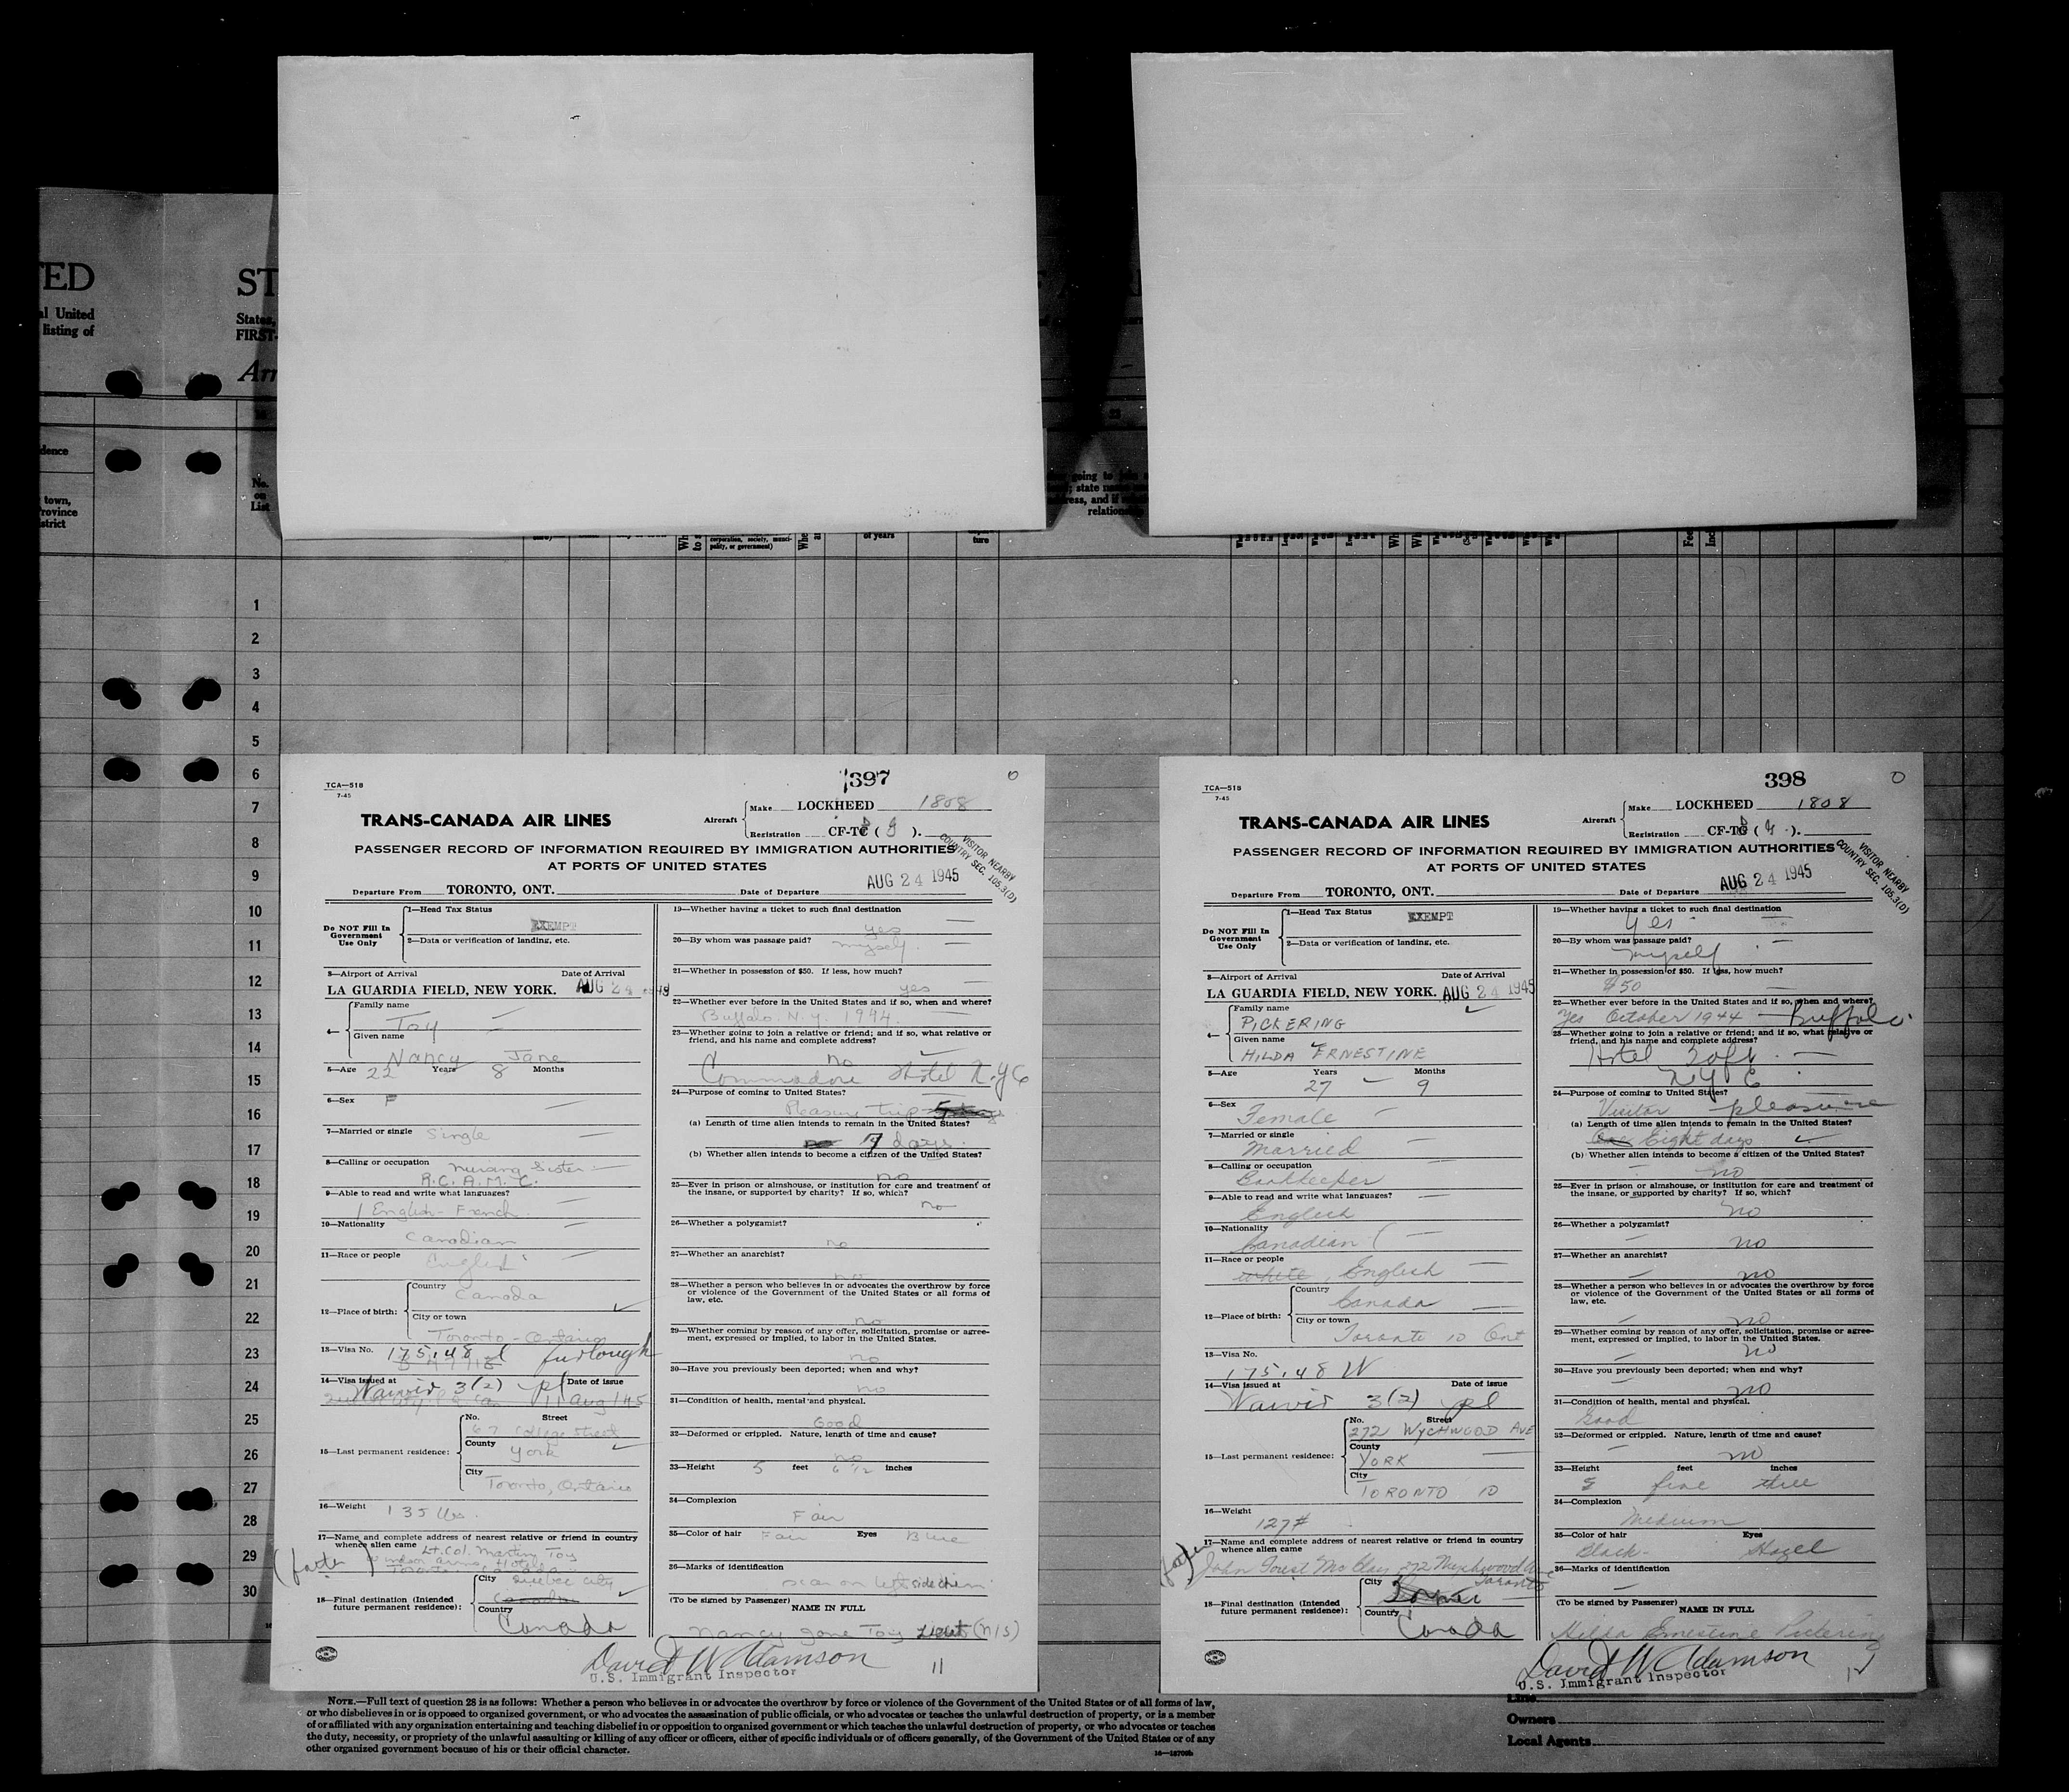 TED
al United
listing of
ST
States,
FIRST-
dence
town,
rovince
strict
No.
on
List
going to
; state
ress, and if
relationship
corporation, society, munici-
pality, or government)
of years
ture
1
2
3
4
5
6
7
8
9
10
11
12
13
14
15
16
17
18
19
20
21
22
23
24
25
26
27
28
29
30
TCA—518
7-45
397
O
TRANS-CANADA AIR LINES
Aircraft
Make LOCKHEED 1808
Registration CF-TC ( ).
PASSENGER RECORD OF INFORMATION REQUIRED BY IMMIGRATION AUTHORITIES
AT PORTS OF UNITED STATES
VISITOR NEARBY
COUNTRY SEC. 105.3(D)
Departure From TORONTO, ONT. Date of Departure AUG 24 1945
Do NOT Fill In
Government
Use Only
1—Head Tax Status
EXEMPT
2—Data or verification of landing, etc.
3—Airport of Arrival Date of Arrival
LA GUARDIA FIELD, NEW YORK. AUG 24
4—
Family name
Toy
Given name
Nancy Jane
5—Age 22 Years 8 Months
6—Sex F
7—Married or single Single
8—Calling or occupation Nursing Sister
R.C.A.M.C.
9—Able to read and write what languages?
English - French
10—Nationality
Canadian
11—Race or people
English
12—Place of birth:
Country
Canada
City or town
Toronto - Ontario
13—Visa No. 175.48 furlough
14—Visa issued at Date of issue
Waived 3(2) 11 Aug/45
15—Last permanent residence:
No. Street
67 College Street
County
York
City
Toronto, Ontario
16—Weight 135 lbs.
17—Name and complete address of nearest relative or friend in country
whence alien came Lt. Col. Martin Toy
Windsor Arms Hotel
Toronto
18—Final destination (Intended
future permanent residence):
City Quebec City
Country
Canada
19—Whether having a ticket to such final destination
yes
20—By whom was passage paid? myself
21—Whether in possession of $50. If less, how much?
yes
22—Whether ever before in the United States and if so, when and where?
Buffalo. N.Y. 1944
23—Whether going to join a relative or friend; and if so, what relative or
friend, and his name and complete address?
no
Commadore Hotel N.Y.C
24—Purpose of coming to United States?
Pleasure trip
(a) Length of time alien intends to remain in the United States?
7 days.
(b) Whether alien intends to become a citizen of the United States?
no
25—Ever in prison or almshouse, or institution for care and treatment of
the insane, or supported by charity? If so, which?
no
26—Whether a polygamist?
no
27—Whether an anarchist?
no
28—Whether a person who believes in or advocates the overthrow by force
or violence of the Government of the United States or all forms of
law, etc.
no
29—Whether coming by reason of any offer, solicitation, promise or agree-
ment, expressed or implied, to labor in the United States.
no
30—Have you previously been deported; when and why?
no
31—Condition of health, mental and physical.
Good
32—Deformed or crippled. Nature, length of time and cause?
no
33—Height 5 feet 6 1/2 inches
34—Complexion
Fair
35—Color of hair Fair Eyes Blue
36—Marks of identification
scar on left side chin
(To be signed by Passenger)
NAME IN FULL
Nancy Jane Toy Lieut (N/S)
David W Adamson
U.S. Immigrant Inspector
11
TCA—518
7-45
398
O
TRANS-CANADA AIR LINES
Aircraft
Make LOCKHEED 1808
Registration CF-TC ( ).
PASSENGER RECORD OF INFORMATION REQUIRED BY IMMIGRATION AUTHORITIES
AT PORTS OF UNITED STATES
VISITOR NEARBY
COUNTRY SEC. 105.3(D)
Departure From TORONTO, ONT. Date of Departure AUG 24 1945
Do NOT Fill In
Government
Use Only
1—Head Tax Status
EXEMPT
2—Data or verification of landing, etc.
3—Airport of Arrival Date of Arrival
LA GUARDIA FIELD, NEW YORK. AUG 24 1945
4—
Family name
PICKERING
Given name
HILDA ERNESTINE
5—Age Years Months
27 9
6—Sex
Female
7—Married or single
Married
8—Calling or occupation
Bookkeeper
9—Able to read and write what languages?
English
10—Nationality
Canadian
11—Race or people
white, English
12—Place of birth:
Country
Canada
City or town
Toronto 10 Ont
13—Visa No.
175.48 W
14—Visa issued at Date of issue
Waived 3(2)
15—Last permanent residence:
No. Street
272 WYCHWOOD AVE
County
YORK
City
TORONTO 10
16—Weight
127#
17—Name and complete address of nearest relative or friend in country
whence alien came
272 Wychwood Ave
Toronto
18—Final destination (Intended
future permanent residence):
City
Country
Canada
19—Whether having a ticket to such final destination
Yes
20—By whom was passage paid?
myself
21—Whether in possession of $50. If less, how much?
$50
22—Whether ever before in the United States and if so, when and where?
Yes October 1944 Buffalo
23—Whether going to join a relative or friend; and if so, what relative or
friend, and his name and complete address?
Hotel Taft
N.Y.C
24—Purpose of coming to United States?
Visitor pleasure
(a) Length of time alien intends to remain in the United States?
Eight days
(b) Whether alien intends to become a citizen of the United States?
no
25—Ever in prison or almshouse, or institution for care and treatment of
the insane, or supported by charity? If so, which?
no
26—Whether a polygamist?
no
27—Whether an anarchist?
no
28—Whether a person who believes in or advocates the overthrow by force
or violence of the Government of the United States or all forms of
law, etc.
no
29—Whether coming by reason of any offer, solicitation, promise or agree-
ment, expressed or implied, to labor in the United States.
no
30—Have you previously been deported; when and why?
no
31—Condition of health, mental and physical.
Good
32—Deformed or crippled. Nature, length of time and cause?
no
33—Height feet inches
five three
34—Complexion
Medium
35—Color of hair Eyes
Black Hazel
36—Marks of identification
(To be signed by Passenger)
NAME IN FULL
Hilda Ernestine Pickering
David W Adamson
U.S. Immigrant Inspector
NOTE.—Full text of question 28 is as follows: Whether a person who believes in or advocates the overthrow by force or violence of the Government of the United States or of all forms of law,
or who disbelieves in or is opposed to organized government, or who advocates the assassination of public officials, or who advocates or teaches the unlawful destruction of property, or is a member
of or affiliated with any organization entertaining and teaching disbelief in or opposition to organized government or which teaches the unlawful destruction of property, or who advocates or teaches
the duty, necessity, or propriety of the unlawful assaulting or killing of any officer or officers, either of specific individuals or of officers generally, of the Government of the United States or of any
other organized government because of his or their official character.
Line
Owners
Local Agents